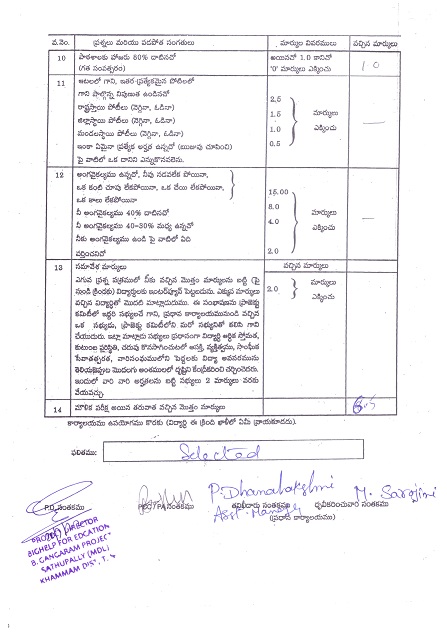 వ.నెం. ప్రశ్నలు మరియు పడపోత సంగతులు మార్కుల వివరములు వచ్చిన మార్కులు
10 పాఠశాలకు హాజరు 80% దాటినచో అయినచో 1.0 కానిచో 10
(గత సంవత్సరం) '0' మార్కులు ఎక్కించు
11 ఆటలలో గాని, ఇతర ప్రత్యేకమైన పోటీలలో
గాని పాల్గొన్న నిపుణత ఉండినచో
రాష్ట్రస్థాయి పోటీలు (నెగ్గినా, ఓడినా) 2.5
జిల్లాస్థాయి పోటీలు (నెగ్గినా, ఓడినా) 1.5 మార్కులు
మండలస్థాయి పోటీలు (నెగ్గినా, ఓడినా) 1.0 ఎక్కించు
ఇంకా ఏమైనా ప్రత్యేక అర్హత ఉన్నచో (ఋజువు చూపించి) 0.5
పై వాటిలో ఒక దానిని ఎన్నుకొనవలెను.
12 అంగవైకల్యము ఉన్నచో, నీవు నడవలేక పోయినా,
ఒక కంటి చూపు లేకపోయినా, ఒక చేయి లేకపోయినా, 15.00
ఒక కాలు లేకపోయినా 8.0
నీ అంగవైకల్యము 40% దాటినచో 4.0 మార్కులు
నీ అంగవైకల్యము 40-30% మధ్య ఉన్నచో ఎక్కించు
నీకు అంగవైకల్యము ఉండి పై వాటిలో ఏది 2.0
వర్తించనిచో
13 సమావేశ మార్కులు వచ్చిన మార్కులు
ఎగువ ప్రశ్న పత్రములో నీకు వచ్చిన మొత్తం మార్కులను బట్టి (పై 2.0 మార్కులు
నుండి క్రిందకు) విద్యార్థులకు ఇంటర్వ్యూవ్ పెట్టబడును. ఎక్కువ మార్కులు ఎక్కించు
వచ్చిన విద్యార్థితో మొదట మాట్లాడుదురు. ఈ సంభాషణను ప్రాజెక్టు
కమిటీలో ఇద్దరి సభ్యులనే గాని, ప్రధాన కార్యాలయమునుండి వచ్చిన
ఒక సభ్యుడు, ప్రాజెక్టు కమిటీలోని మరో సభ్యునితో కలిసి గాని
చేయుదురు. ఇట్లా మాట్లాడు సభ్యులు ప్రధానంగా విద్యార్థి ఆర్థిక స్తోమత,
కుటుంబ పరిస్థితి, చదువు కొనసాగించుటలో ఆసక్తి, వ్యక్తిత్వము, సాంఘిక
సేవాతత్పరత, వారిసంఘములోని పెద్దలకు విద్యా అవసరమును
తెలియజెప్పుట మొదలగు అంశములలో దృష్టిని కేంద్రీకరించి చర్చించెదరు.
ఇందులో వారి వారి అర్హతలను బట్టి సభ్యులు 2 మార్కులు వరకు
వేయవచ్చు.
14 మౌలిక పరీక్ష అయిన తరువాత వచ్చిన మొత్తం మార్కులు
కార్యాలయము ఉపయోగము కొరకు (విద్యార్థి ఈ క్రింది ఖాళీలో ఏమీ వ్రాయకూడదు).
ఫలితము: Selected
P. Dhanalakshmi M. Sarojini
P.D. సంతకము P.C./P.A. సంతకము తనిఖీదారు సంతకము ధృవీకరించువారి సంతకము
(ప్రధాన కార్యాలయము)
PROJECT DIRECTOR
BIGHELP FOR EDCATION
B. GANGARAM PROJECT
SATHUPALLY (MDL)
KHAMMAM DIST,